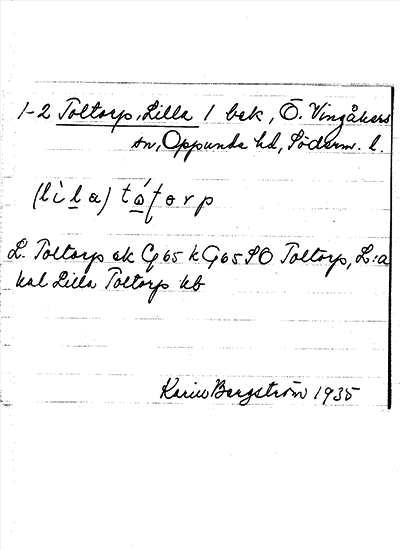 1-2 Toltorp, Lilla 1 bek, Ö. Vingåkers
sn, Oppunda hd, Söderm. l.
(lìla) tó̱torp
L. Toltorp ek G65 k G65 SO Toltorp, L:a
kal Lilla Toltorp kb
Karin Bergström 1935